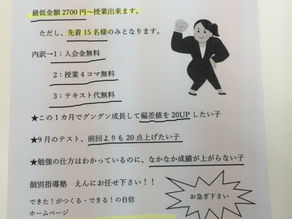 最低金額 2700 円～授業出来ます。
ただし、先着 15 名様のみとなります。
内訳→1：入会金無料
2：授業 4 コマ無料
3：テキスト代無料
★この 1 カ月でグングン成長して偏差値を 20UP したい子
★9 月のテスト、前回よりも 20 点上げたい子
★勉強の仕方はわかっているのに、なかなか成績が上がらない子
個別指導塾 えんにお任せ下さい！！
お急ぎ下さい
できた！がつくる・できる！の自信
ホームページ